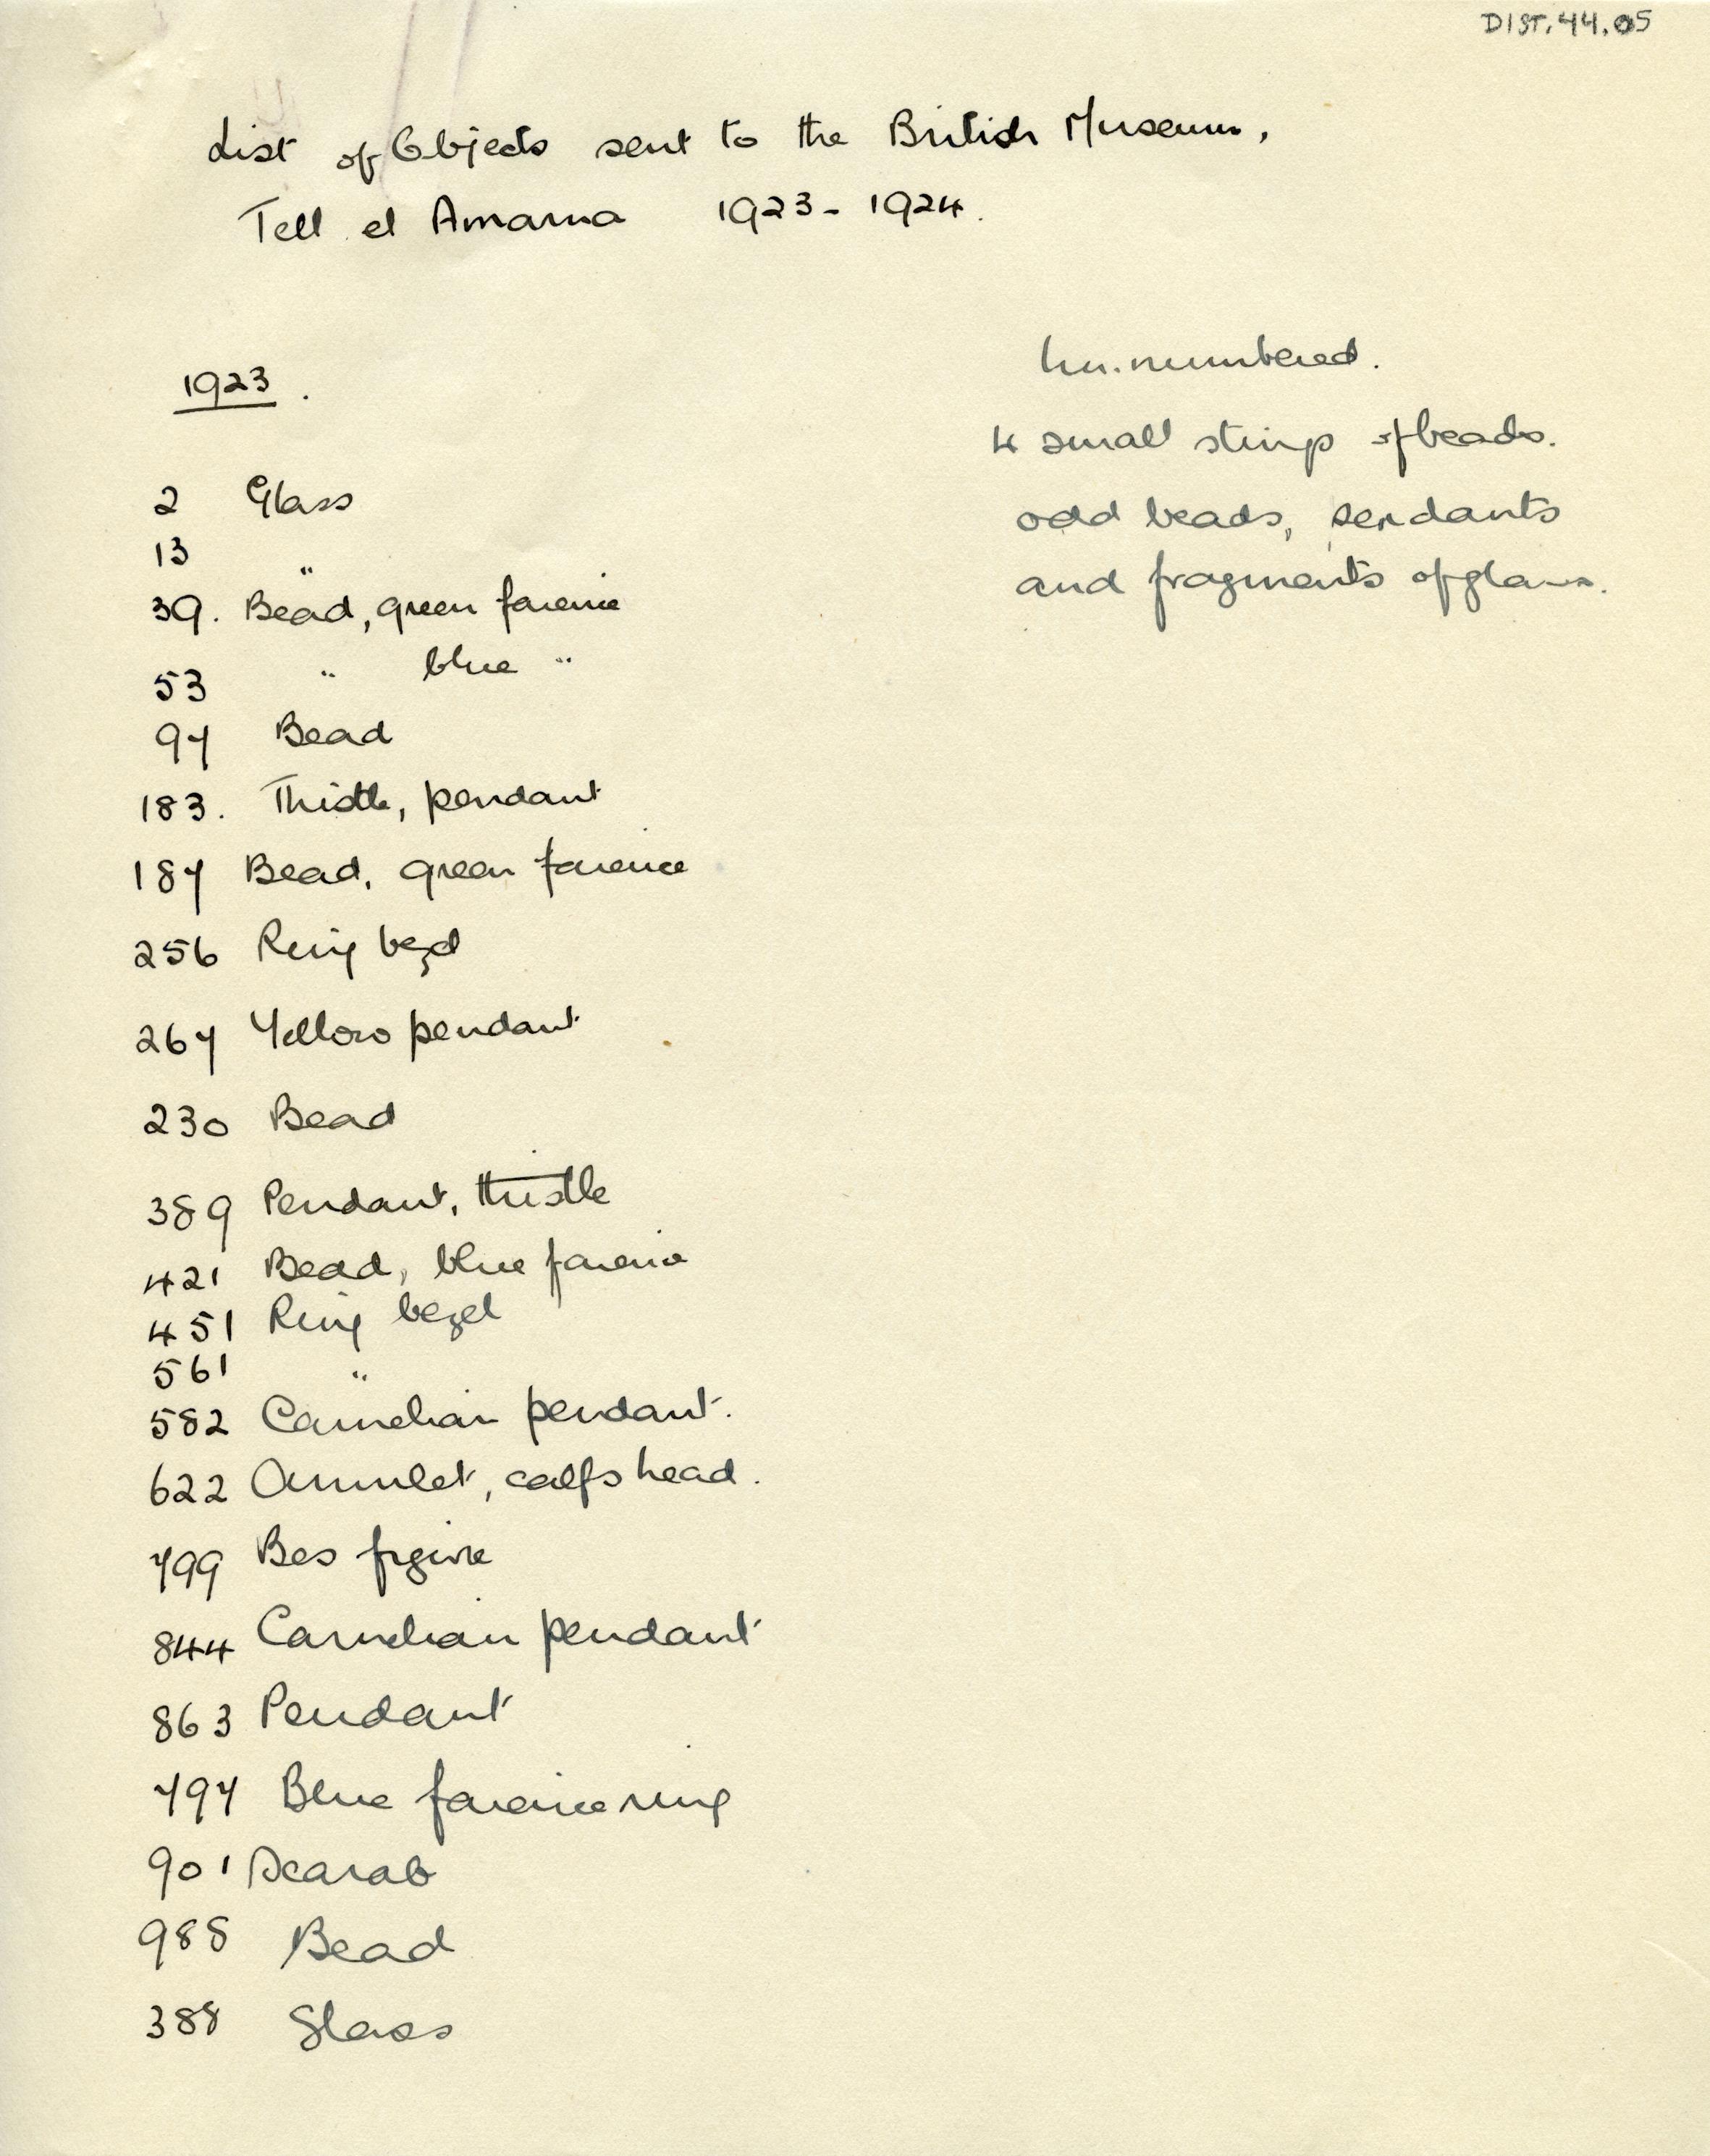 DIST.44.05
List of Objects sent to the British Museum,
Tell el Amarna 1923-1924.
1923.
2 Glass
13 "
39. Bead, green faience
53 " blue "
97 Bead
183. Thistle, pendant
187 Bead, green faience
256 Ring bezel
267 Yellow pendant
230 Bead
389 Pendant, thistle
421 Bead, blue faience
451 Ring bezel
561 "
582 Carnelian pendant.
622 Amulet, calfs head.
799 Bes figure
844 Carnelian pendant
863 Pendant
797 Blue faience ring
901 Scarab
988 Bead
388 Glass
Un.numbered.
4 small strings of beads.
odd beads, pendants
and fragments of glass.